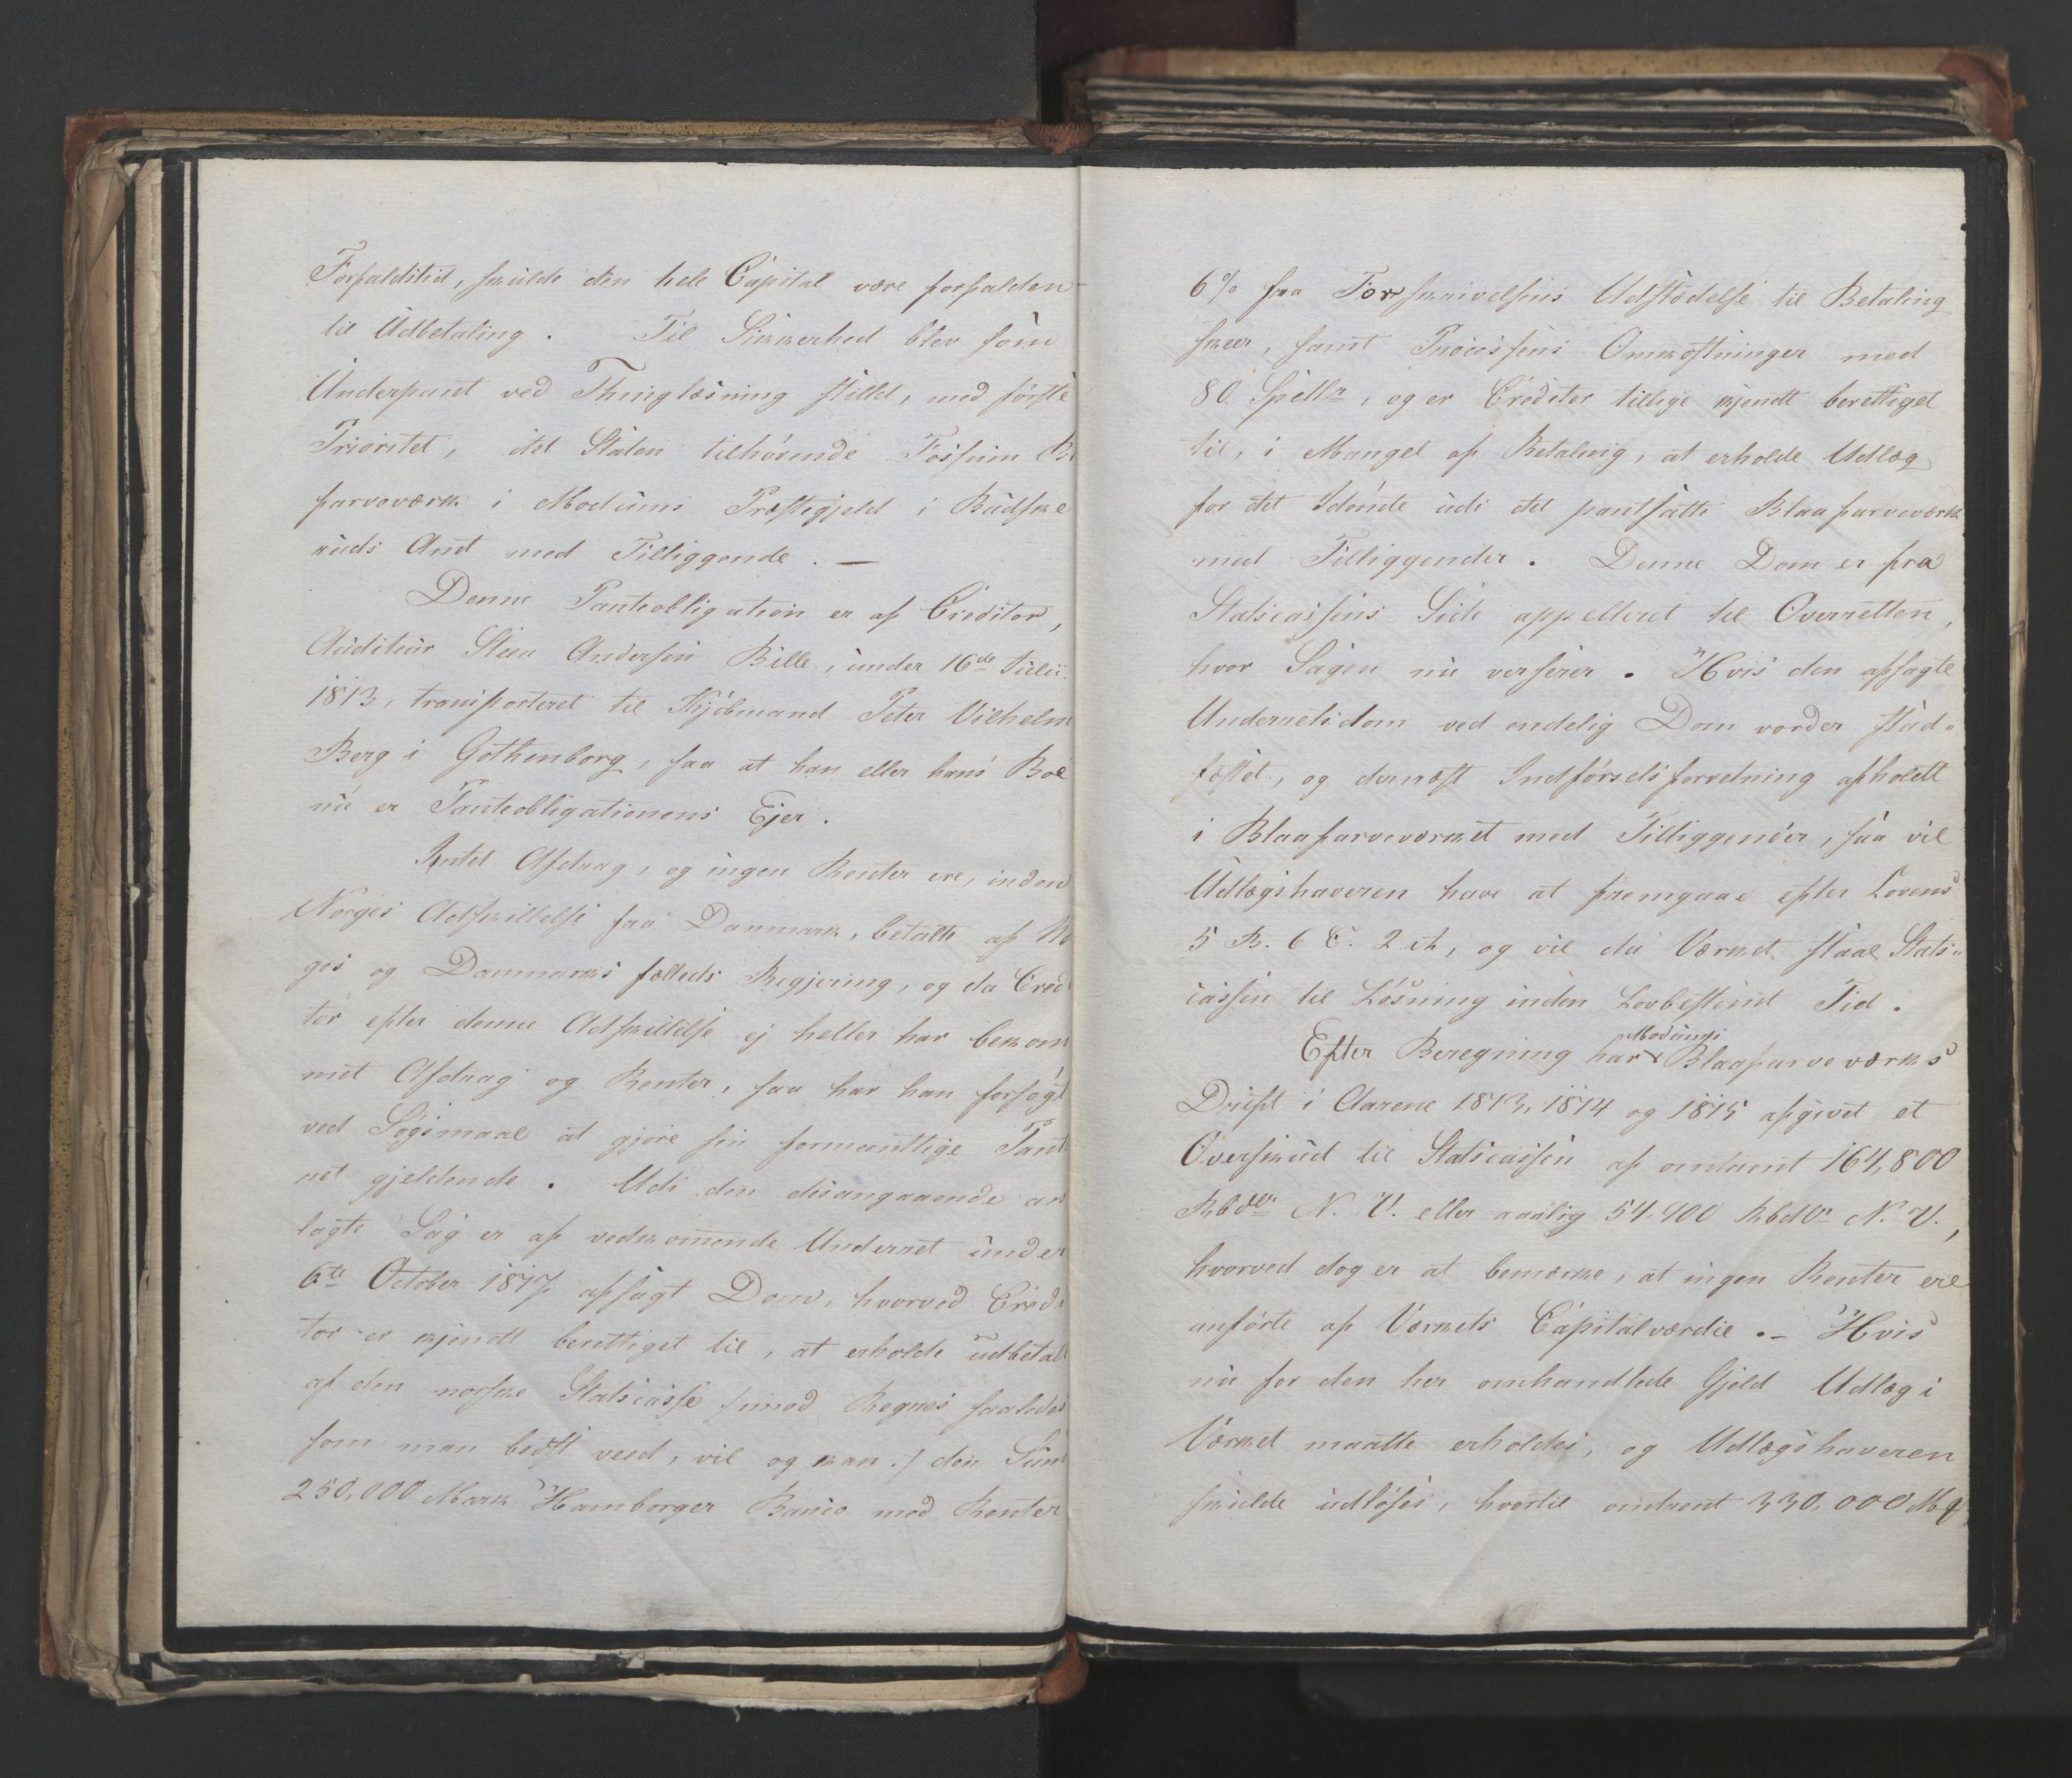 Forfaldstid, skulde den hele Capital være forfalden
til Udbetaling. Til Sikkerhed blev som
Underpant ved Thinglæsning stillet, med første
Prioritet, det Staten tilhørende Fossum Bl
farveværk i Modums Præstegjeld i Budske
ruds Amt med Tilliggende. —
Denne Panteobligation er af Creditor,
Auditeur Steen Andersen Bille, under 16de Julii
1813, transporteret til Kjøbmand Peter Vilhelm
Berg i Gothenborg, saa at han eller hans Boe
nu er Panteobligationens Ejer.
Intet Afdrag, og ingen Renter ere, inden
Norges Adskillelse fra Danmark, betalte af No
ges og Danmarks fælleds Regjering, og da Credi
tor efter denne Adskillelse ej heller har bekom
met Afdrag og Renter, saa har han forsøgt
ved Søgsmaal at gjøre sin formeentlige Pant
ret gjeldende. Udi den desangaaende an
lagte Sag er af vedkommende Underret under
6te October 1817 afsagt Dom, hvorved Credi
tor er kjendt berettiget til, at erholde udbetalt
af den norske Statscasse /:mod Regres saaledes
som man bedst veed, vil og kan:/ den Sum
250,000 Mark Hamborger Banco med Renter
6% fra Forskrivelsens Udstædelse til Betaling
skeer, samt Processens Omkostninger med
80 Spdlr, og er Creditor tillige kjendt berettiget
til, i Mangel af Betaling, at erholde Udlæg
for det Idømte udi det pantsatte Blaafarveværk
med Tilliggender. Denne Dom er fra
Statscassens Side appelleret til Overretten,
hvor Sagen nu verserer. Hvis den afsagte
Underretsdom ved endelig Dom vorder stad-
fæstet, og dernæst Indførselsforretning afholdt
i Blaafarveværket med Tilliggender, saa vil
Udlægshaveren have at fremgaae efter Lovens
5 B. 6 C. 2 Art, og vil da Værket staae Stats-
cassen til Løsning inden Lovbestemt Tid.
Efter Beregning har Modums Blaafarveværks
Drift i Aarene 1813, 1814 og 1815 afgivet et
Overskud til Statscassen af omtrent 164,800
Rbdlr N. V. eller aarlig 54,900 Rbdlr N. V.,
hvorved dog er at bemærke, at ingen Renter ere
anførte af Værkets Capitalværdie. — Hvis
nu for den her omhandlede Gjeld Udlæg i
Værket maatte erholdes, og Udlægshaveren
skulde udløses, hvortil omtrent 330,000 Mk